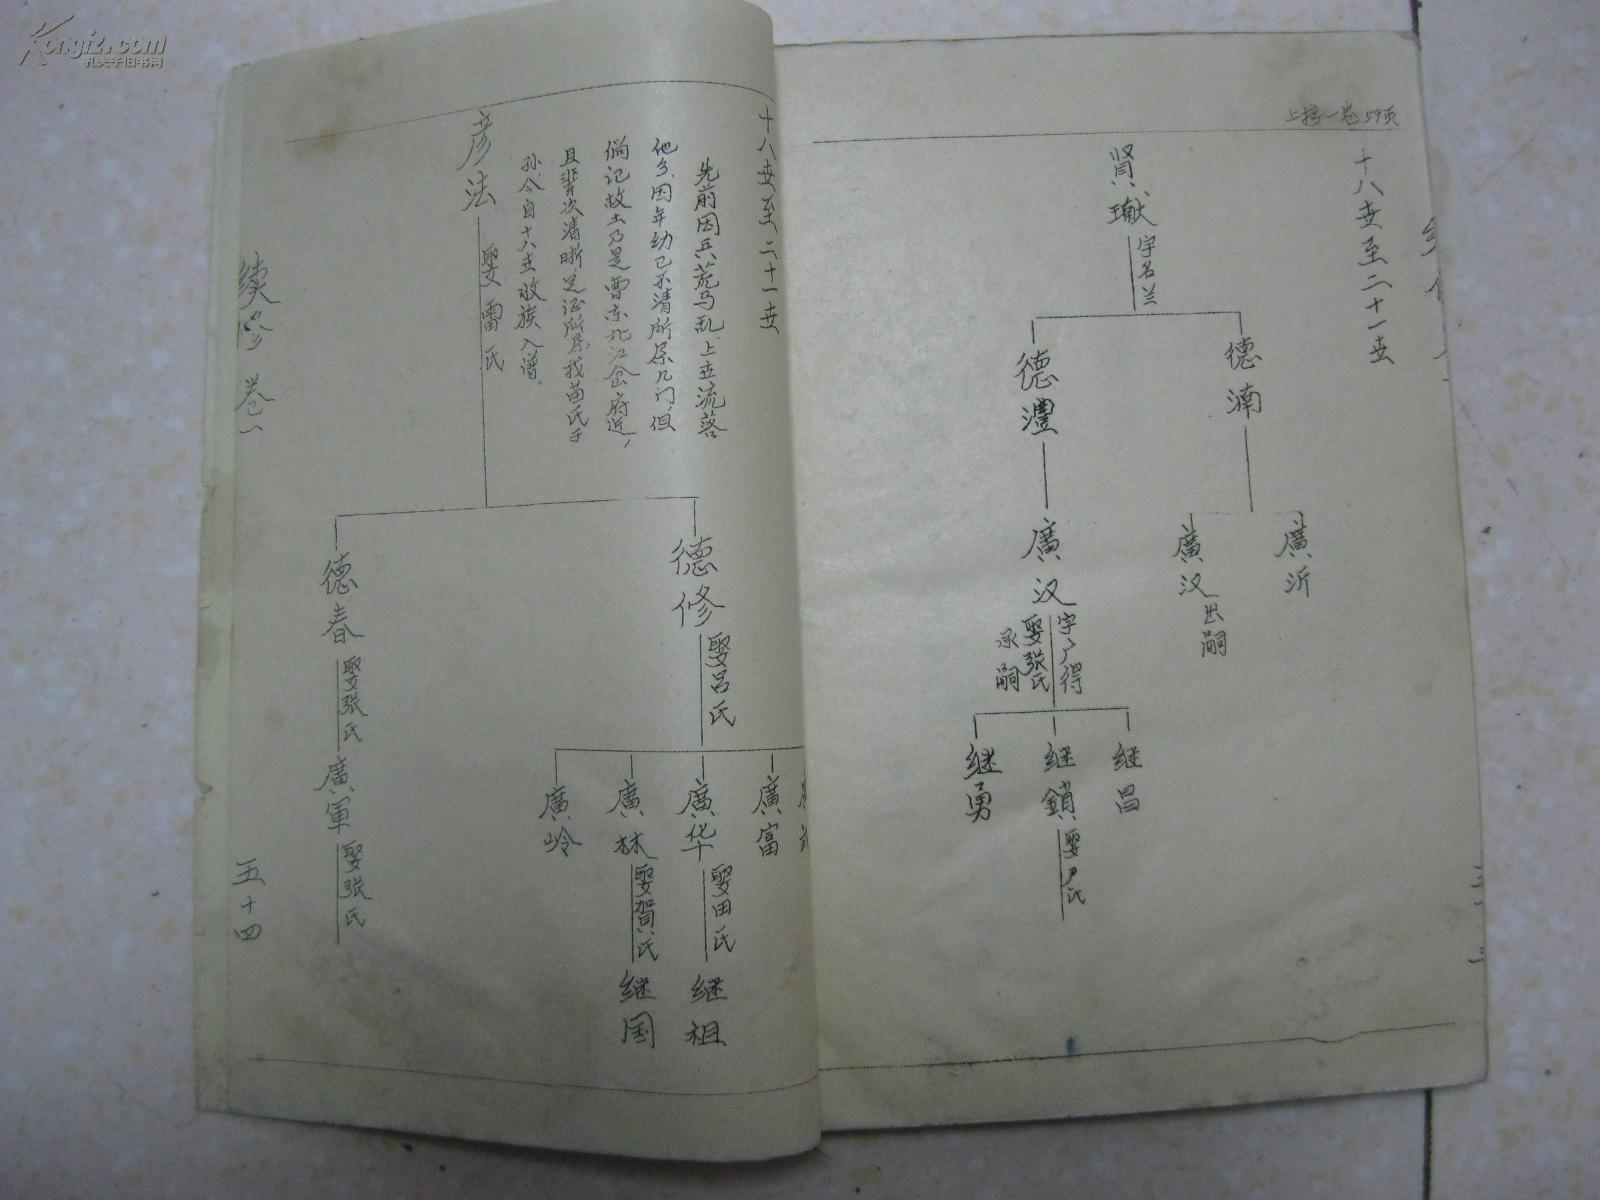 Kongfz.com
孔夫子旧书网
上接一卷59页
十八世至二十一世
贤瓛
字名兰
德湳
德灃
廣沂
廣汉
出嗣
廣汉
字广得
娶张氏
承嗣
继昌
继鎖
娶尹氏
继勇
十八世至二十一世
先前因兵荒马乱,上世流落
他乡,因年幼已不清所系几门,但
倘记故土乃是曹东北江 府近,
且辈次清晰,足证所系我苗氏子
孙,今自十八世收族入谱。
彦法
娶雷氏
德修
娶吕氏
德春
娶张氏
廣富
廣华
娶田氏
继祖
廣林
娶賀氏
继国
廣岭
廣軍
娶张氏
續修卷一
五十四